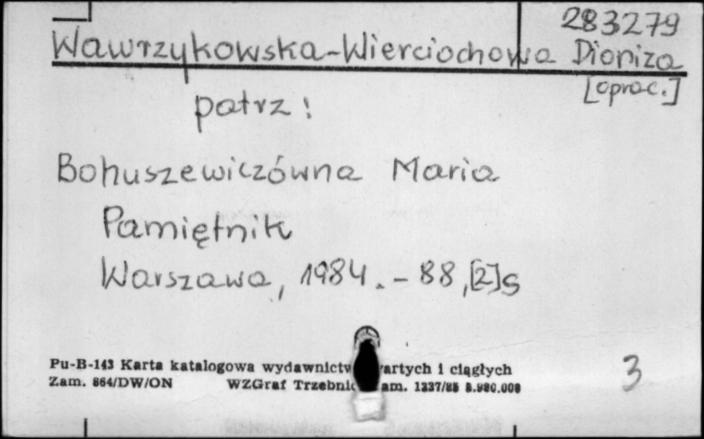 283279
Wawrzykowska-Wierciochowa Dioniza
[oprac.]
patrz:
Bohuszewiczówna Maria
Pamiętnik
Warszawa, 1984. - 88, [2] s
3
Pu-B-143 Karta katalogowa wydawnictw zwartych i ciągłych
Zam. 864/DW/ON WZGraf Trzebnic am.